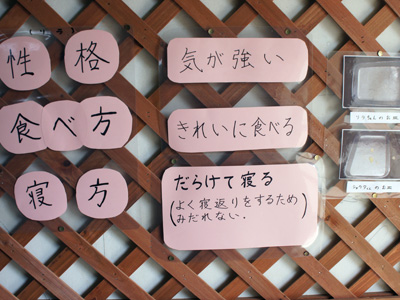 性格
気が強い
食べ方
きれいに食べる
寝方
だらけて寝る
(よく寝返りをするため
みだれない.)